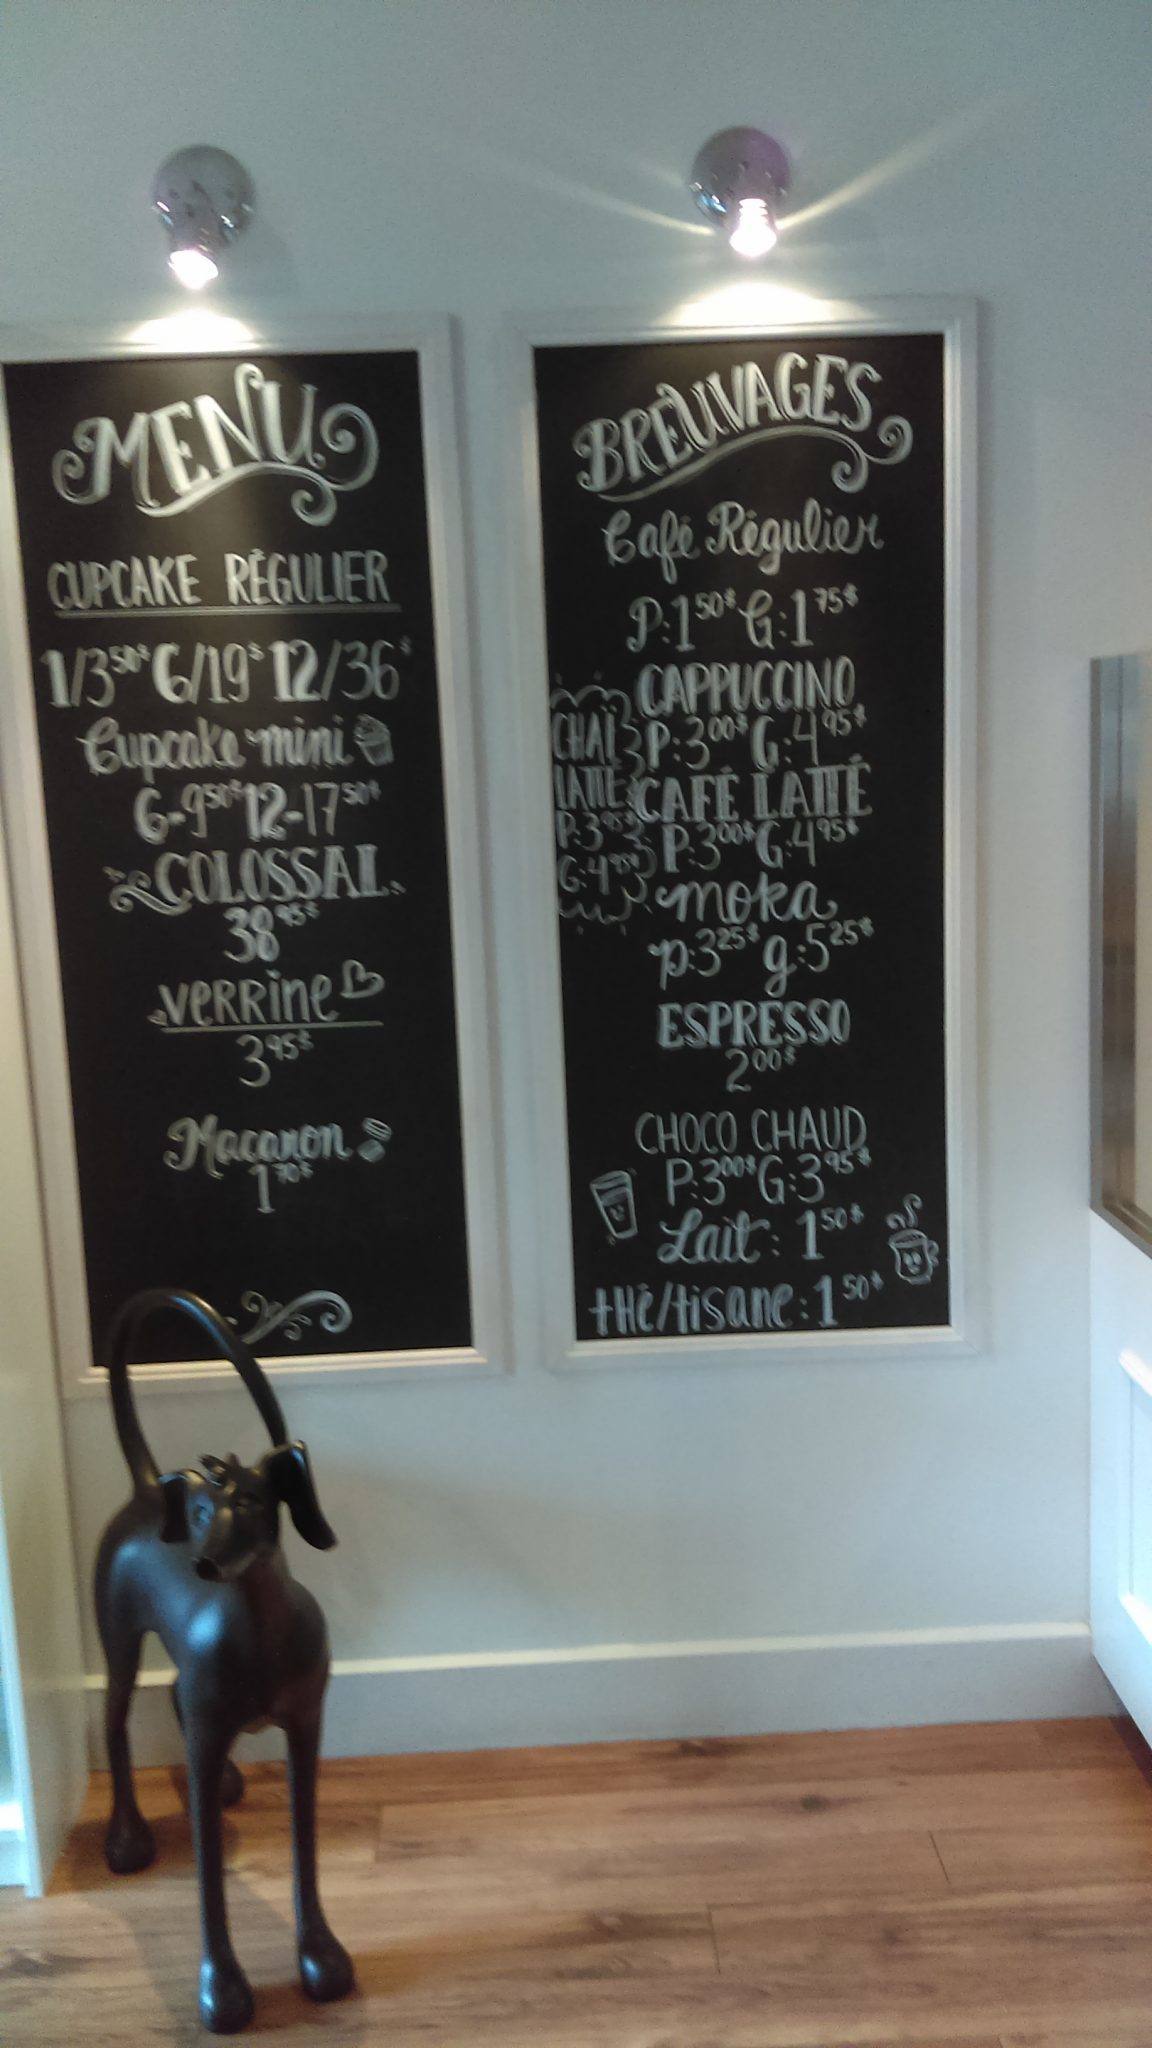 MENU
CUPCAKE RÉGULIER
1/3⁵⁰$ 6/19$ 12/36$
Cupcake mini
6-9⁵⁰$ 12-17⁵⁰$
COLOSSAL
38⁹⁵$
verrine
3⁹⁵$
Macaron
1⁷⁰$
BREUVAGES
Café Régulier
P:1⁵⁰$ G:1⁷⁵$
CAPPUCCINO
P:3⁰⁰$ G:4⁹⁵$
CAFÉ LATTÉ
P:3⁰⁰$ G:4⁹⁵$
CHAÏ
LATTE
P:3⁹⁵$
G:4⁹⁵$
moka
p:3²⁵$ g:5²⁵$
ESPRESSO
2⁰⁰$
CHOCO CHAUD
P:3⁰⁰$ G:3⁹⁵$
Lait: 1⁵⁰$
tHé/tisane: 1⁵⁰$